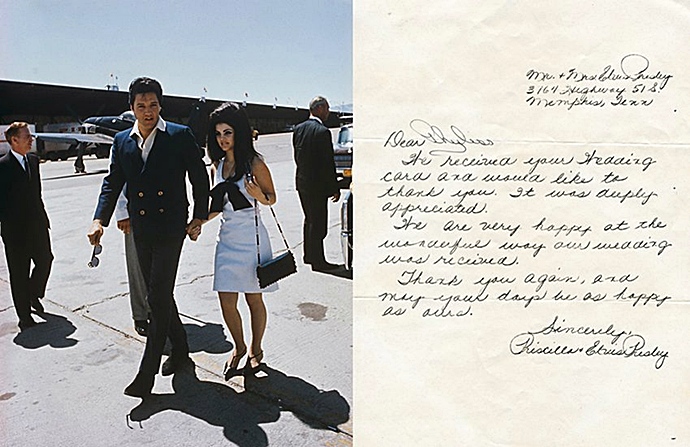 Mr. + Mrs Elvis Presley
3764 Highway 51 S.
Memphis, Tenn
Dear Phyliss
We received your Wedding
card and would like to
thank you. It was deeply
appreciated.
We are very happy at the
wonderful way our wedding
was received.
Thank you again, and
may your days be as happy
as ours.
Sincerely,
Priscilla + Elvis Presley